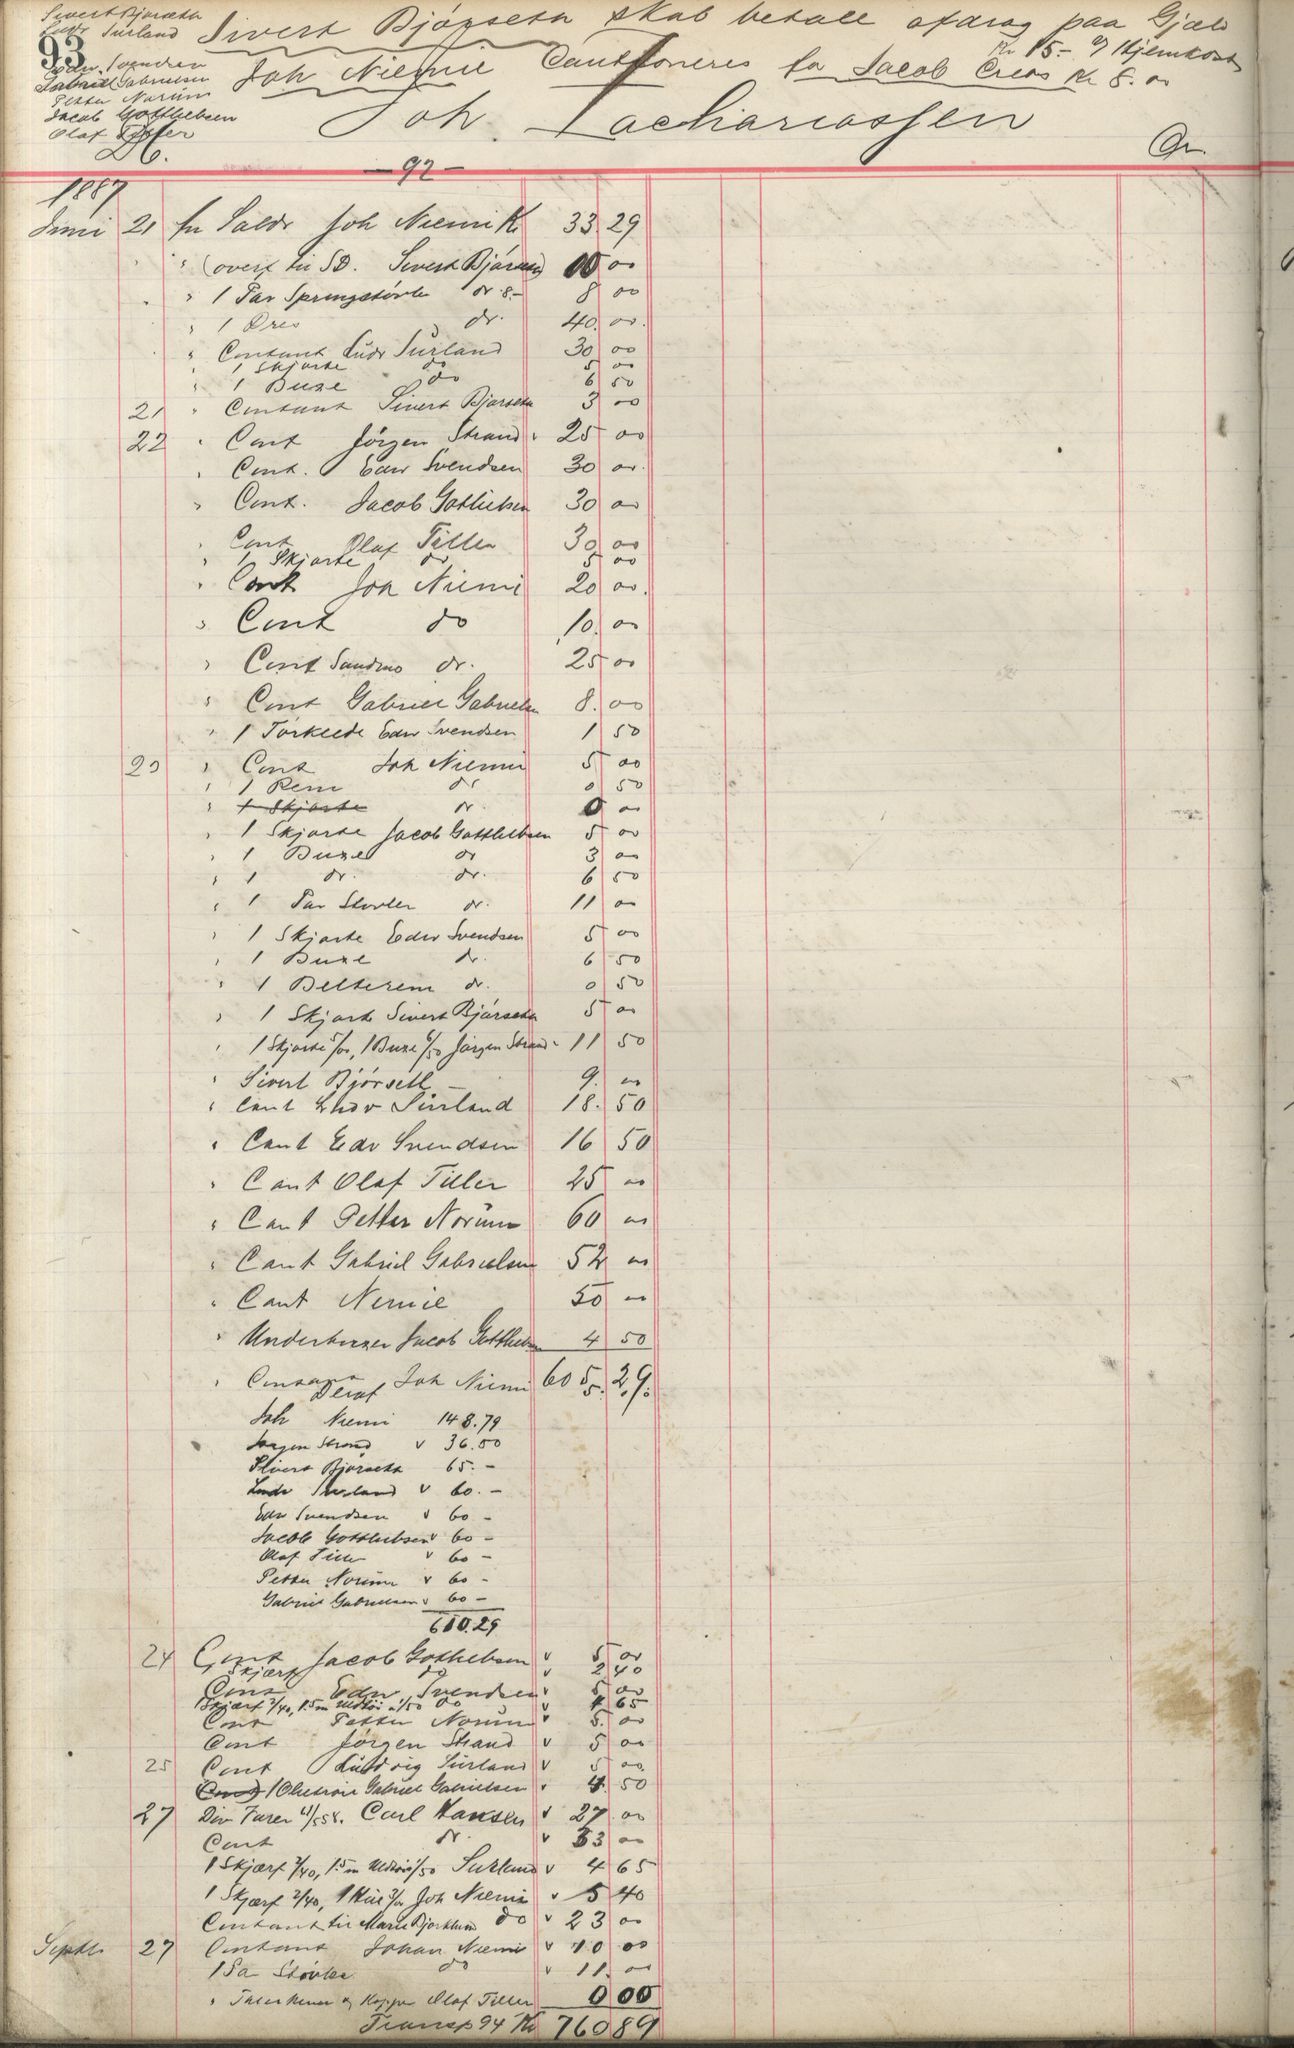 Sivert Bjørseth
Ludv Surland
93
Edw. Svendsen
Gabriel Gabrielsen
Petter Norum
Jacob Gottliebsen
Olaf Tiller
Sivert Bjørseth skal betale afdrag paa Gjæld
Kr 15.-
Joh Niemie Cautioneres for Jacob Kr 8.00
Joh. Zachariassen
Dr.
Cr.
— 92 —
1887
Juni 21 fr Saldo Joh Niemi K. 33 29
" (overf til SD. Sivert Bjørseth) 00
" 1 Par Springstøvle do 8.- 8 00
" 1 Dres do. 40. 00.
" Contant Ludv Surland 30 00
" 1 Skjorte do 5 00
" 1 Buxe do 6 50
21 " Contant Sivert Bjørseth 3 00
22 " Cont Jørgen Strand 25 00
" Cont. Edw Svendsen 30 00.
" Cont. Jacob Gottliebsen 30 00
" Cont Olaf Tiller 30 00
" 1 Skjorte do 5 00
" Cont Joh Niemi 20 00.
" Cont do 10. 00
" Cont Sandmo do. 25 00
" Cont Gabriel Gabrielsen 8. 00
" 1 Tørklede Edw Svendsen 1 50
23 " Cont Joh Niemi 5 00
" 1 Rem do 0 50
" 1 Skjorte do. 0 00
" 1 Skjorte Jacob Gottliebsen 5 00
" 1 Buxe do 3 00
" 1 do. do. 6 50
" 1 Par Støvler do. 11 00
" 1 Skjorte Edw Svendsen 5 00
" 1 Buxe do. 6 50
" 1 Belterem do. 0 50
" 1 Skjorte Sivert Bjørseth 5 00
" 1 Skjorte 5/00, 1 Buxe 6/50 Jørgen Strand 11 50
" Sivert Bjørseth — 9. 00
" Cont Ludv Surland 18. 50
" Cont Edv Svendsen 16 50
" Cont Olaf Tiller 25 00
" Cont Petter Norum 60 00
" Cont Gabriel Gabrielsen 52 00
" Cont Nemie 50 00
" Underbuxer Jacob Gottliebsen 4 50
" Contant Joh Niemi 605 29
Deraf 5.
Joh Niemi 148.79
Jørgen Strand v 36.50
Sivert Bjørseth 65.-
Ludv Surland v 60.-
Edw Svendsen v 60 -
Jacob Gottliebsen v 60 -
Olaf Tiller v 60 -
Petter Norum v 60 -
Gabriel Gabrielsen v 60 -
610.29
24 Cont Jacob Gottliebsen v 5 00
1 Skjærf do v 2 40
Cont Edw Svendsen v 5 00
1 Skjærf 2/40, 1.5 m Uldtøi 1/50 do v 4 65
Cont Petter Norum v 5. 00
Cont Jørgen Strand v 5 00
25 Cont Ludvig Surland v 5 00
1 Olietrøie Gabriel Gabrielsen v 4. 50
27 Div Varer Carl Hansen v 27 00
Cont do. v 33 00
1 Skjærf 2/40, 1.5 m Uldtøi 1/50 Surland v 4 65
1 Skjærf 2/40, 1 Hue 3/00 Joh Niemi v 5 40
Contant til Marie Bjorklund do v 23 00
Septbr 27 Contant Johan Niemi v 10 00
1 Par Støvler do v 11. 00
" Tallerkener og Kopper Olaf Tiller 0 00
Transp 94 Kr 760 89